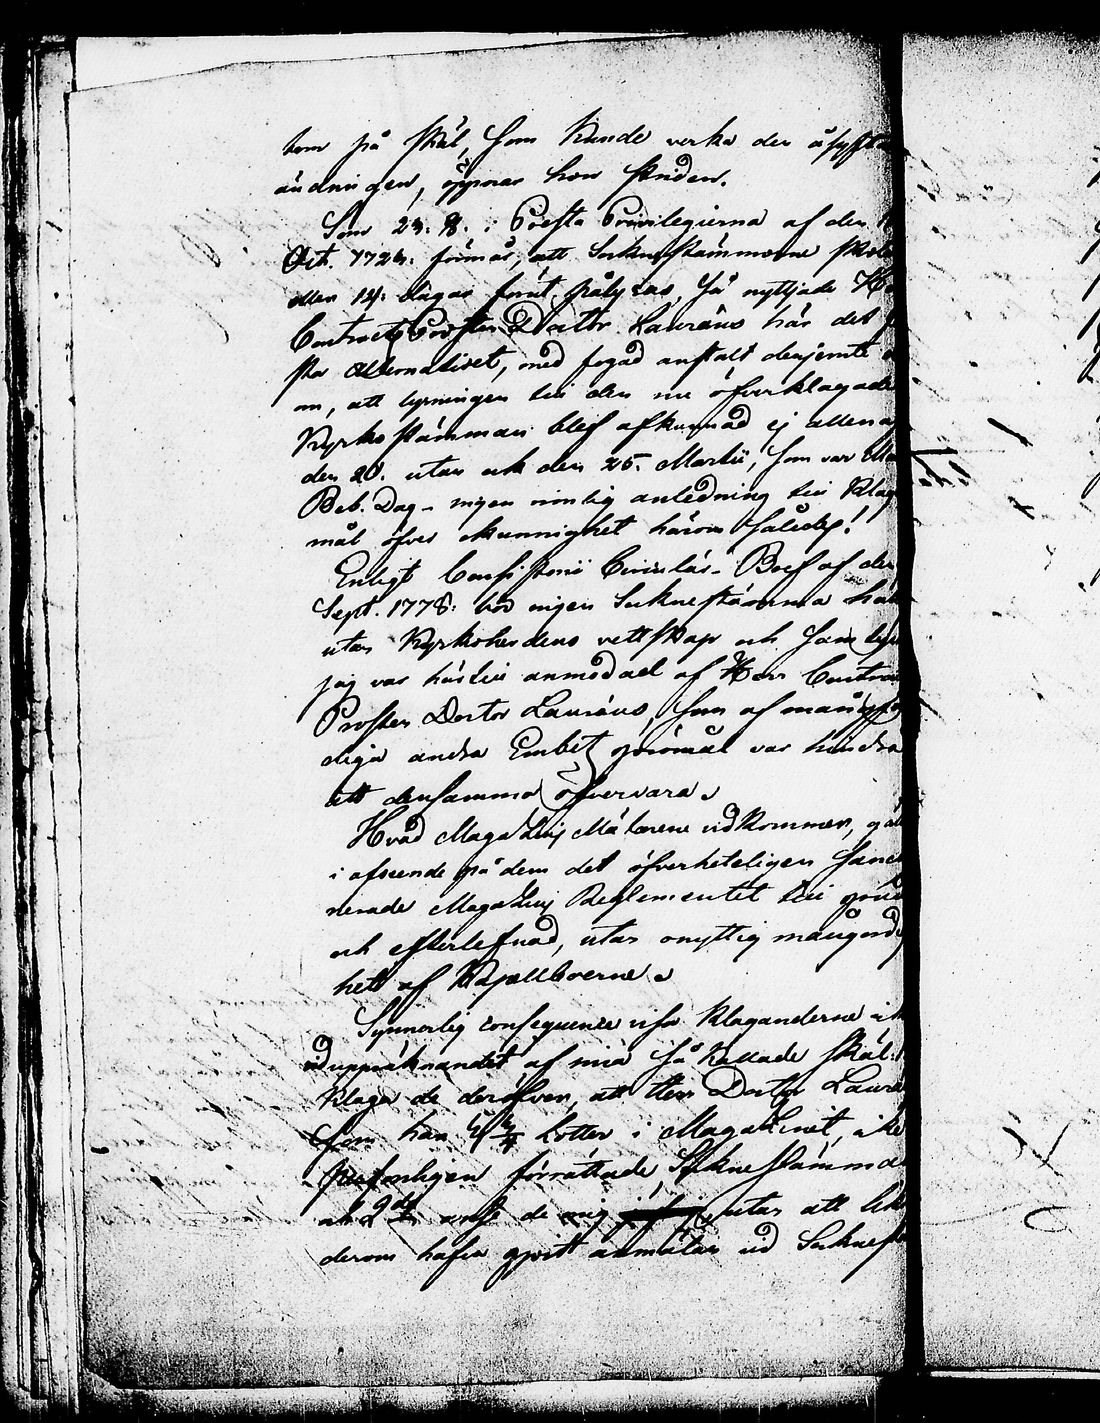 tom på skäl, som kunde verka den åsyfta
ändringen, öppnas hon sanden.
Som 23. §. i Presta Privilegierna af den 1
Oct. 1723. förmår, att Sockne stämmorne skola
eller 14. dagar förut pålysas, så nyttjade He
Contracts Prosten Doctor Lauræus här det f
sta alternativet, med fogad anstalt derjemte
om, att lysningen till den nu öfverklagade
Kyrko stämman blef afkunnad ej allena
den 20. utan ock den 25. Martii, som var Ma
Beb. Dag - ingen rimlig anledning till klag
mål öfver okunnighet härom således!
Enligt Consistorii Circulär-Bref af den
Sept. 1778. bör ingen Sockne stämma hål
utan Kyrkoherdens vettskap och sam
jag var härtill anmodad af Herr Contra
Prosten Doctor Lauræus, som af mångf
diga andra Embets göromål var hindra
att densamma öfvervara.
Hvad Magazins Mätarene vidkommer, gäl
i afseende på dem det öfverheteligen sanc
nerade Magazins Reglementet till
och efterlefnad, utan onyttig mångord
het af Kajallboerne.
Synnerlig consequence visa klaganderne
vid uppräknandet af sina så kallade skäl: 1
klaga de deröfver, att Herr Doctor Lauræ
som har lotter i Magazinet, icke
personligen förrättade Sockne stämma
och 2do de mig utan att
derom hafva gjort anmälan vid Sockne st